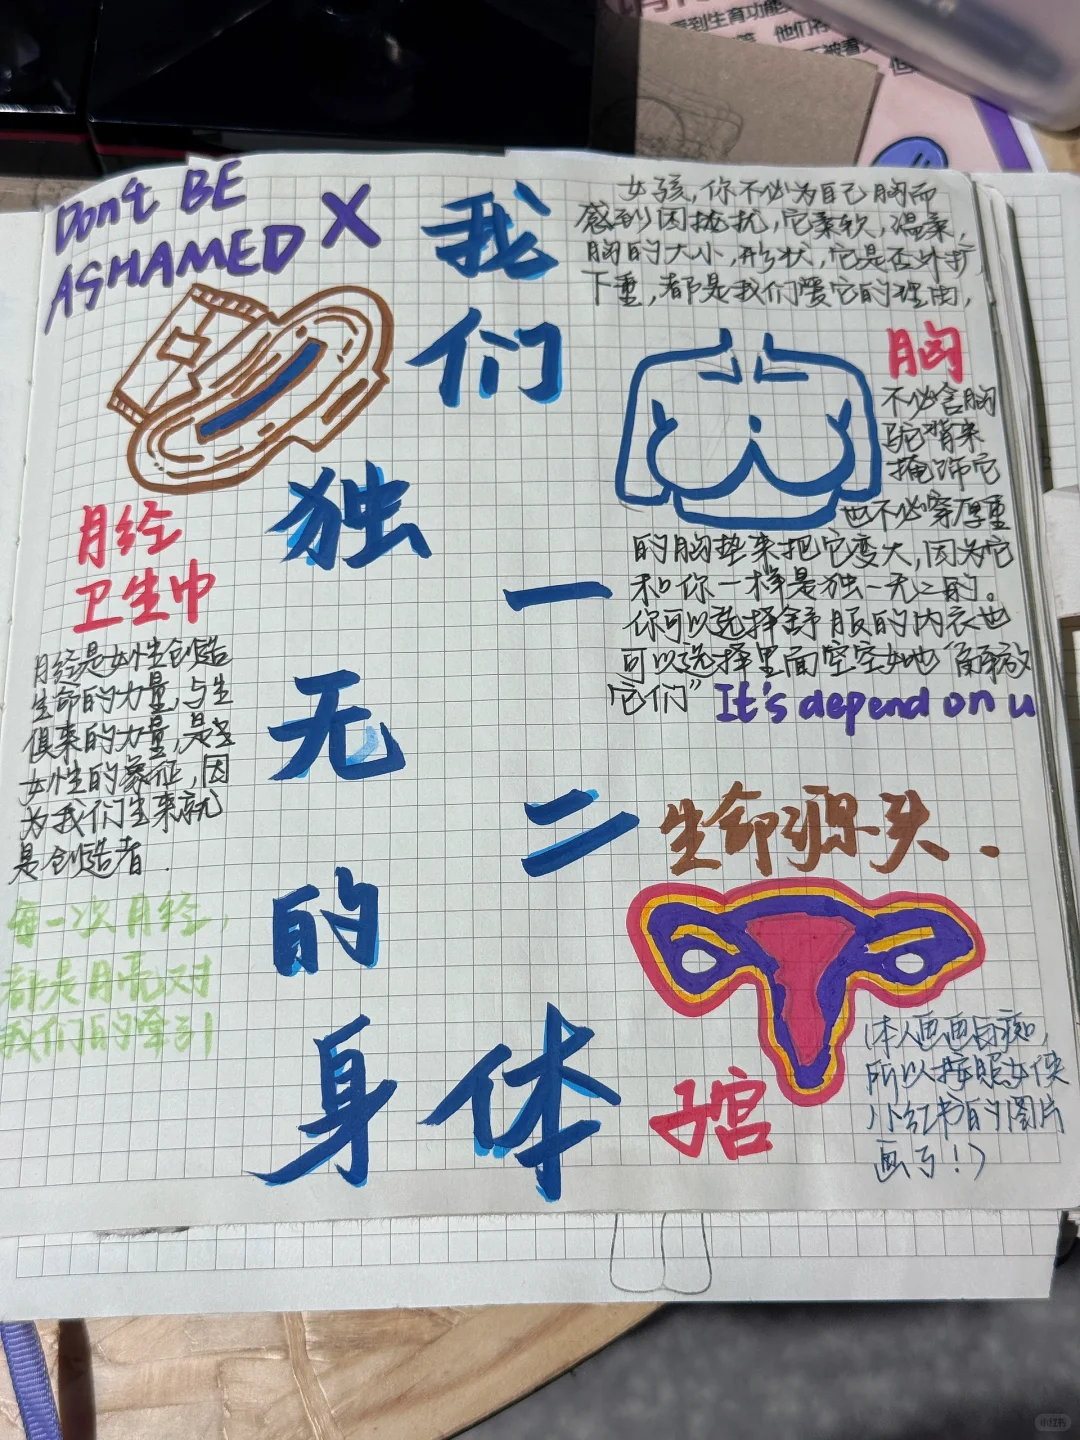 Don't BE
ASHAMED X
我们
独一
无二
的
身体
月经
卫生巾
月经是女性创造
生命的力量,与生
俱来的力量,是
女性的象征,因
为我们生来就
是创造者.
每一次月经,
都是月亮对
我们的牵引
女孩,你不必为自己胸而
感到困扰,它柔软,温柔,
胸的大小,形状,它是否外扩,
下垂,都是我们爱它的理由,
胸
不必含胸
驼背来
掩饰它
也不必穿厚重
的胸垫来把它变大,因为它
和你一样是独一无二的。
你可以选择舒服的内衣也
可以选择里面空空如也“解放
它们”
It's depend on u
生命源头.
子宫
(本人画画白痴,
所以按照女侠
小红书的图片
画了!)
看到生育功能
他们有
被看
小红书